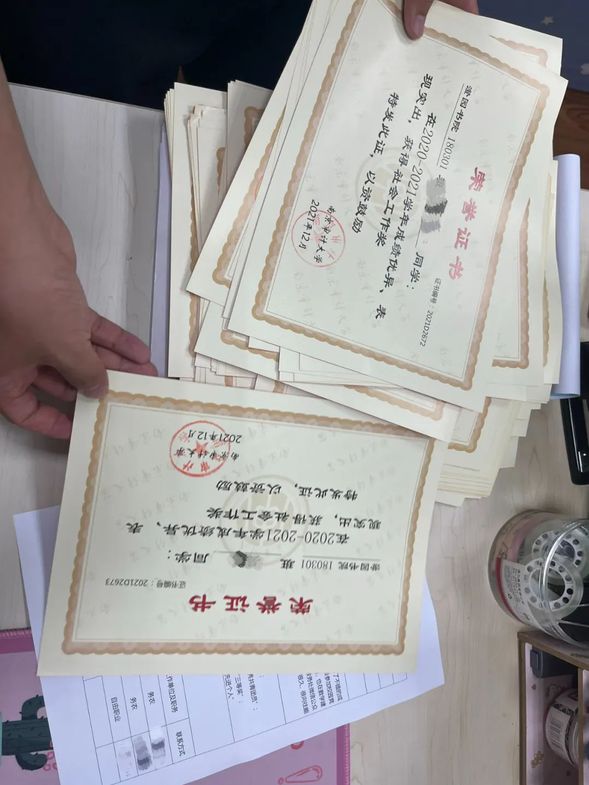 荣誉证书
证书编号：2021D2672
澄园书院 180301
同学：
在2020-2021学年成绩优异、表
现突出，获得社会工作奖
特发此证，以资鼓励
南京审计大学
2021年12月
荣誉证书
证书编号：2021D2673
澄园书院 180301 班
同学：
在2020-2021学年成绩优异、表
现突出，获得社会工作奖
特发此证，以资鼓励
南京审计大学
2021年12月
作单位及职务
联系方式
务农
务农
自由职业